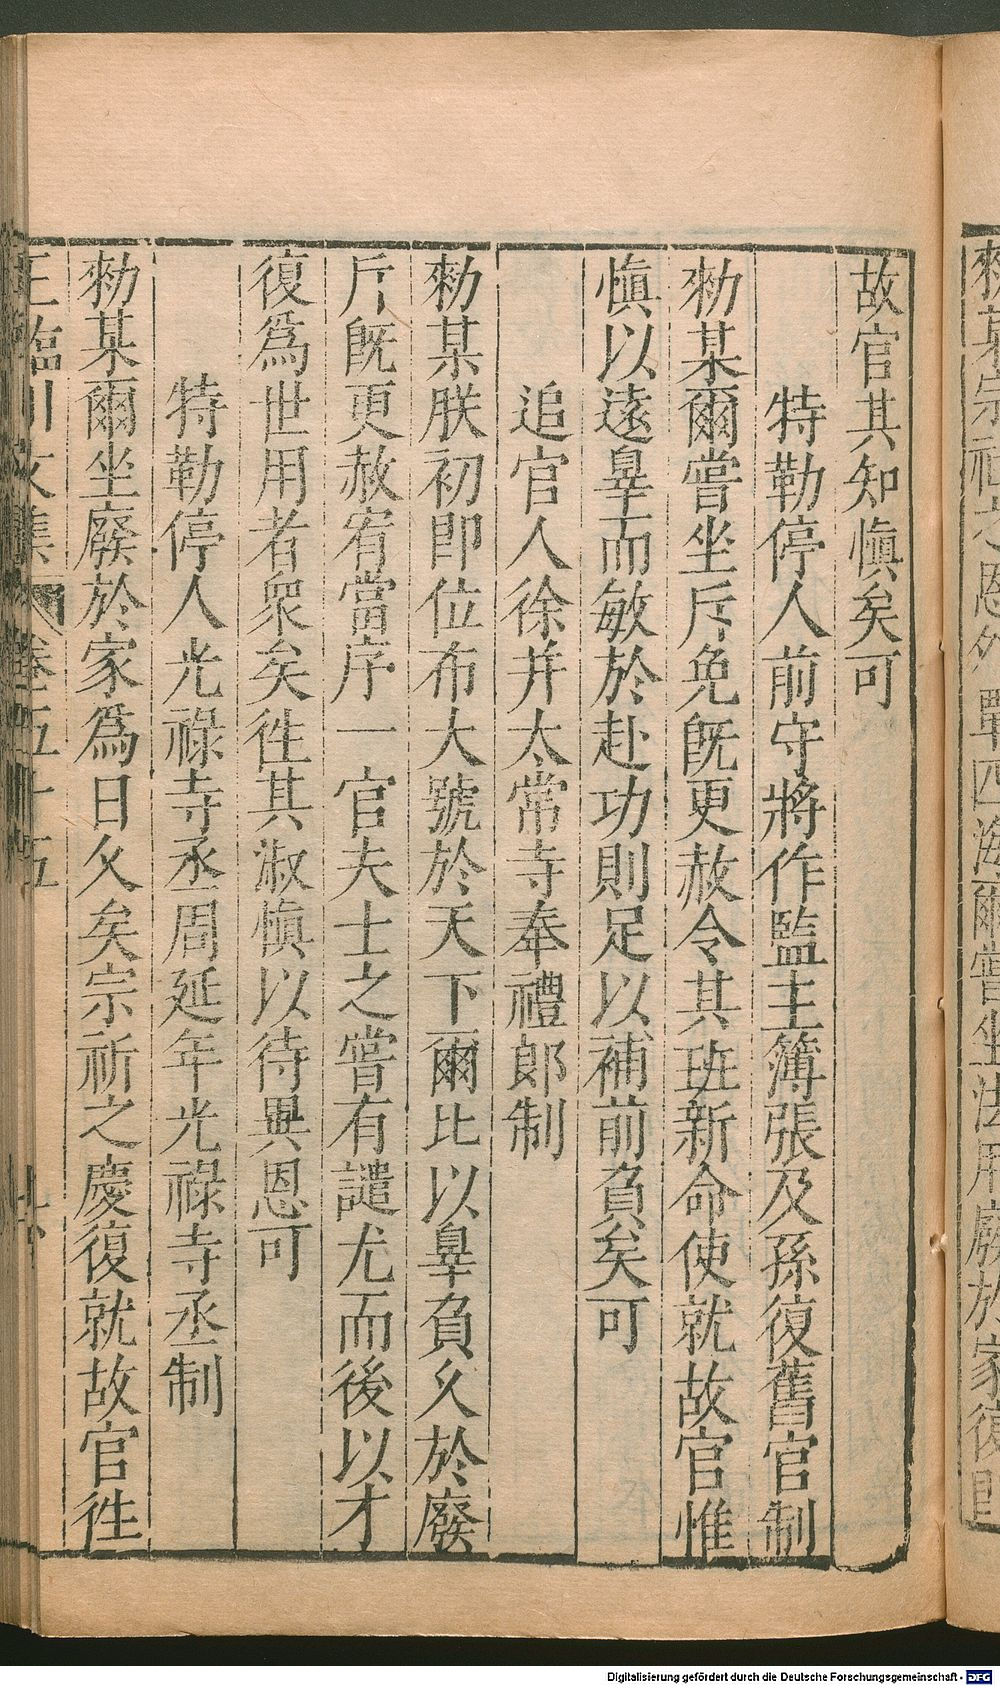 故官其知愼矣可
特勒停人前守將作監主簿張及孫復舊官制
勑某爾嘗坐斥免既更赦令其班新命使就故官惟
愼以遠辠而敏於赴功則足以補前負矣可
追官人徐并太常寺奉禮郞制
勑某朕初卽位布大號於天下爾比以辠負久於廢
斥旣更赦宥當序一官夫士之嘗有譴尤而後以才
復爲世用者衆矣徃其淑愼以待異恩可
特勒停人光祿寺丞周延年光祿寺丞制
勑某爾坐廢於家爲日久矣宗祈之慶復就故官徃
王臨川文集 卷五十五
Digitalisierung gefördert durch die Deutsche Forschungsgemeinschaft - DFG